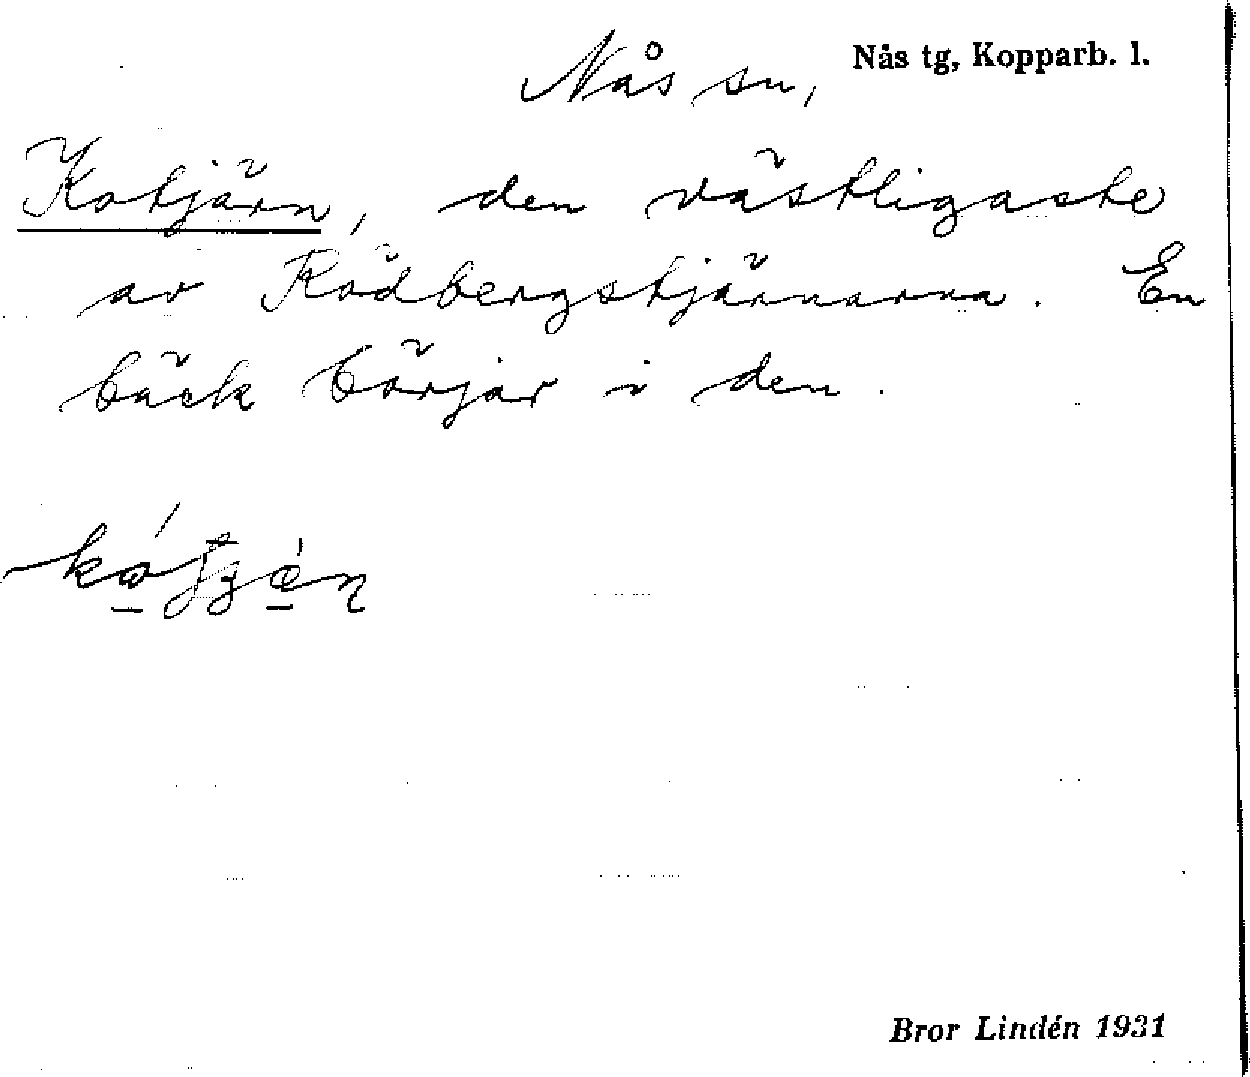 Nås sn,
Nås tg, Kopparb. l.
Kotjärn, den västligaste
av Rödbergstjärnarna. En
bäck börjar i den.
Bror Lindén 1931